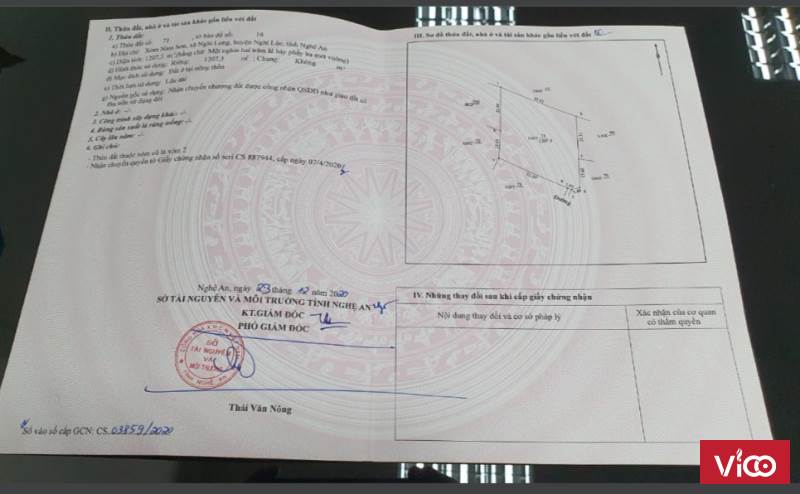 II. Thửa đất, nhà ở và tài sản khác gắn liền với đất
1. Thửa đất:
a) Thửa đất số: 71 , tờ bản đồ số: 16
b) Địa chỉ: Xóm Nam Sơn, xã Nghi Long, huyện Nghi Lộc, tỉnh Nghệ An
c) Diện tích: 1207,3 m² (bằng chữ: Một nghìn hai trăm lẻ bảy phẩy ba mét vuông)
d) Hình thức sử dụng: Riêng: m² ; Chung: Không m²
đ) Mục đích sử dụng: Đất ở tại nông thôn
e) Thời hạn sử dụng: Lâu dài
g) Nguồn gốc sử dụng: Nhận chuyển nhượng đất được công nhận QSDĐ như giao đất có
thu tiền sử dụng đất
2. Nhà ở: -/-
3. Công trình xây dựng khác: -/-
4. Rừng sản xuất là rừng trồng: -/-
5. Cây lâu năm: -/-
6. Ghi chú:
- Thửa đất thuộc xóm cũ là xóm 2
- Nhận chuyển quyền từ Giấy chứng nhận số seri CS 887944, cấp ngày 02/4/2020
Nghệ An, ngày 23 tháng 12 năm 2020
SỞ TÀI NGUYÊN VÀ MÔI TRƯỜNG TỈNH NGHỆ AN
KT.GIÁM ĐỐC
PHÓ GIÁM ĐỐC
SỞ
TÀI NGUYÊN
VÀ
MÔI TRƯỜNG
Thái Văn Nông
Số vào sổ cấp GCN: CS 03859/2020
III. Sơ đồ thửa đất, nhà ở và tài sản khác gắn liền với đất
Đường
IV. Những thay đổi sau khi cấp giấy chứng nhận
Nội dung thay đổi và cơ sở pháp lý
Xác nhận của cơ quan
có thẩm quyền
Vico